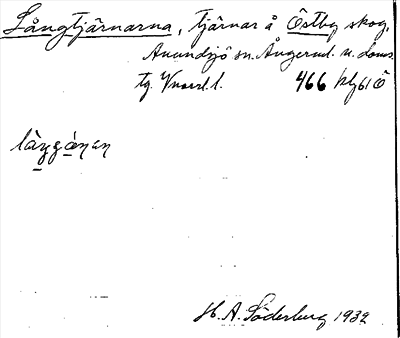 Långtjärnarna, tjärnar å Östby skog,
Anundsjö sn. Ångerml. n. doms.
tg. Vnorrl. l. 466 klg 61 Ö
H. A. Söderberg 1932